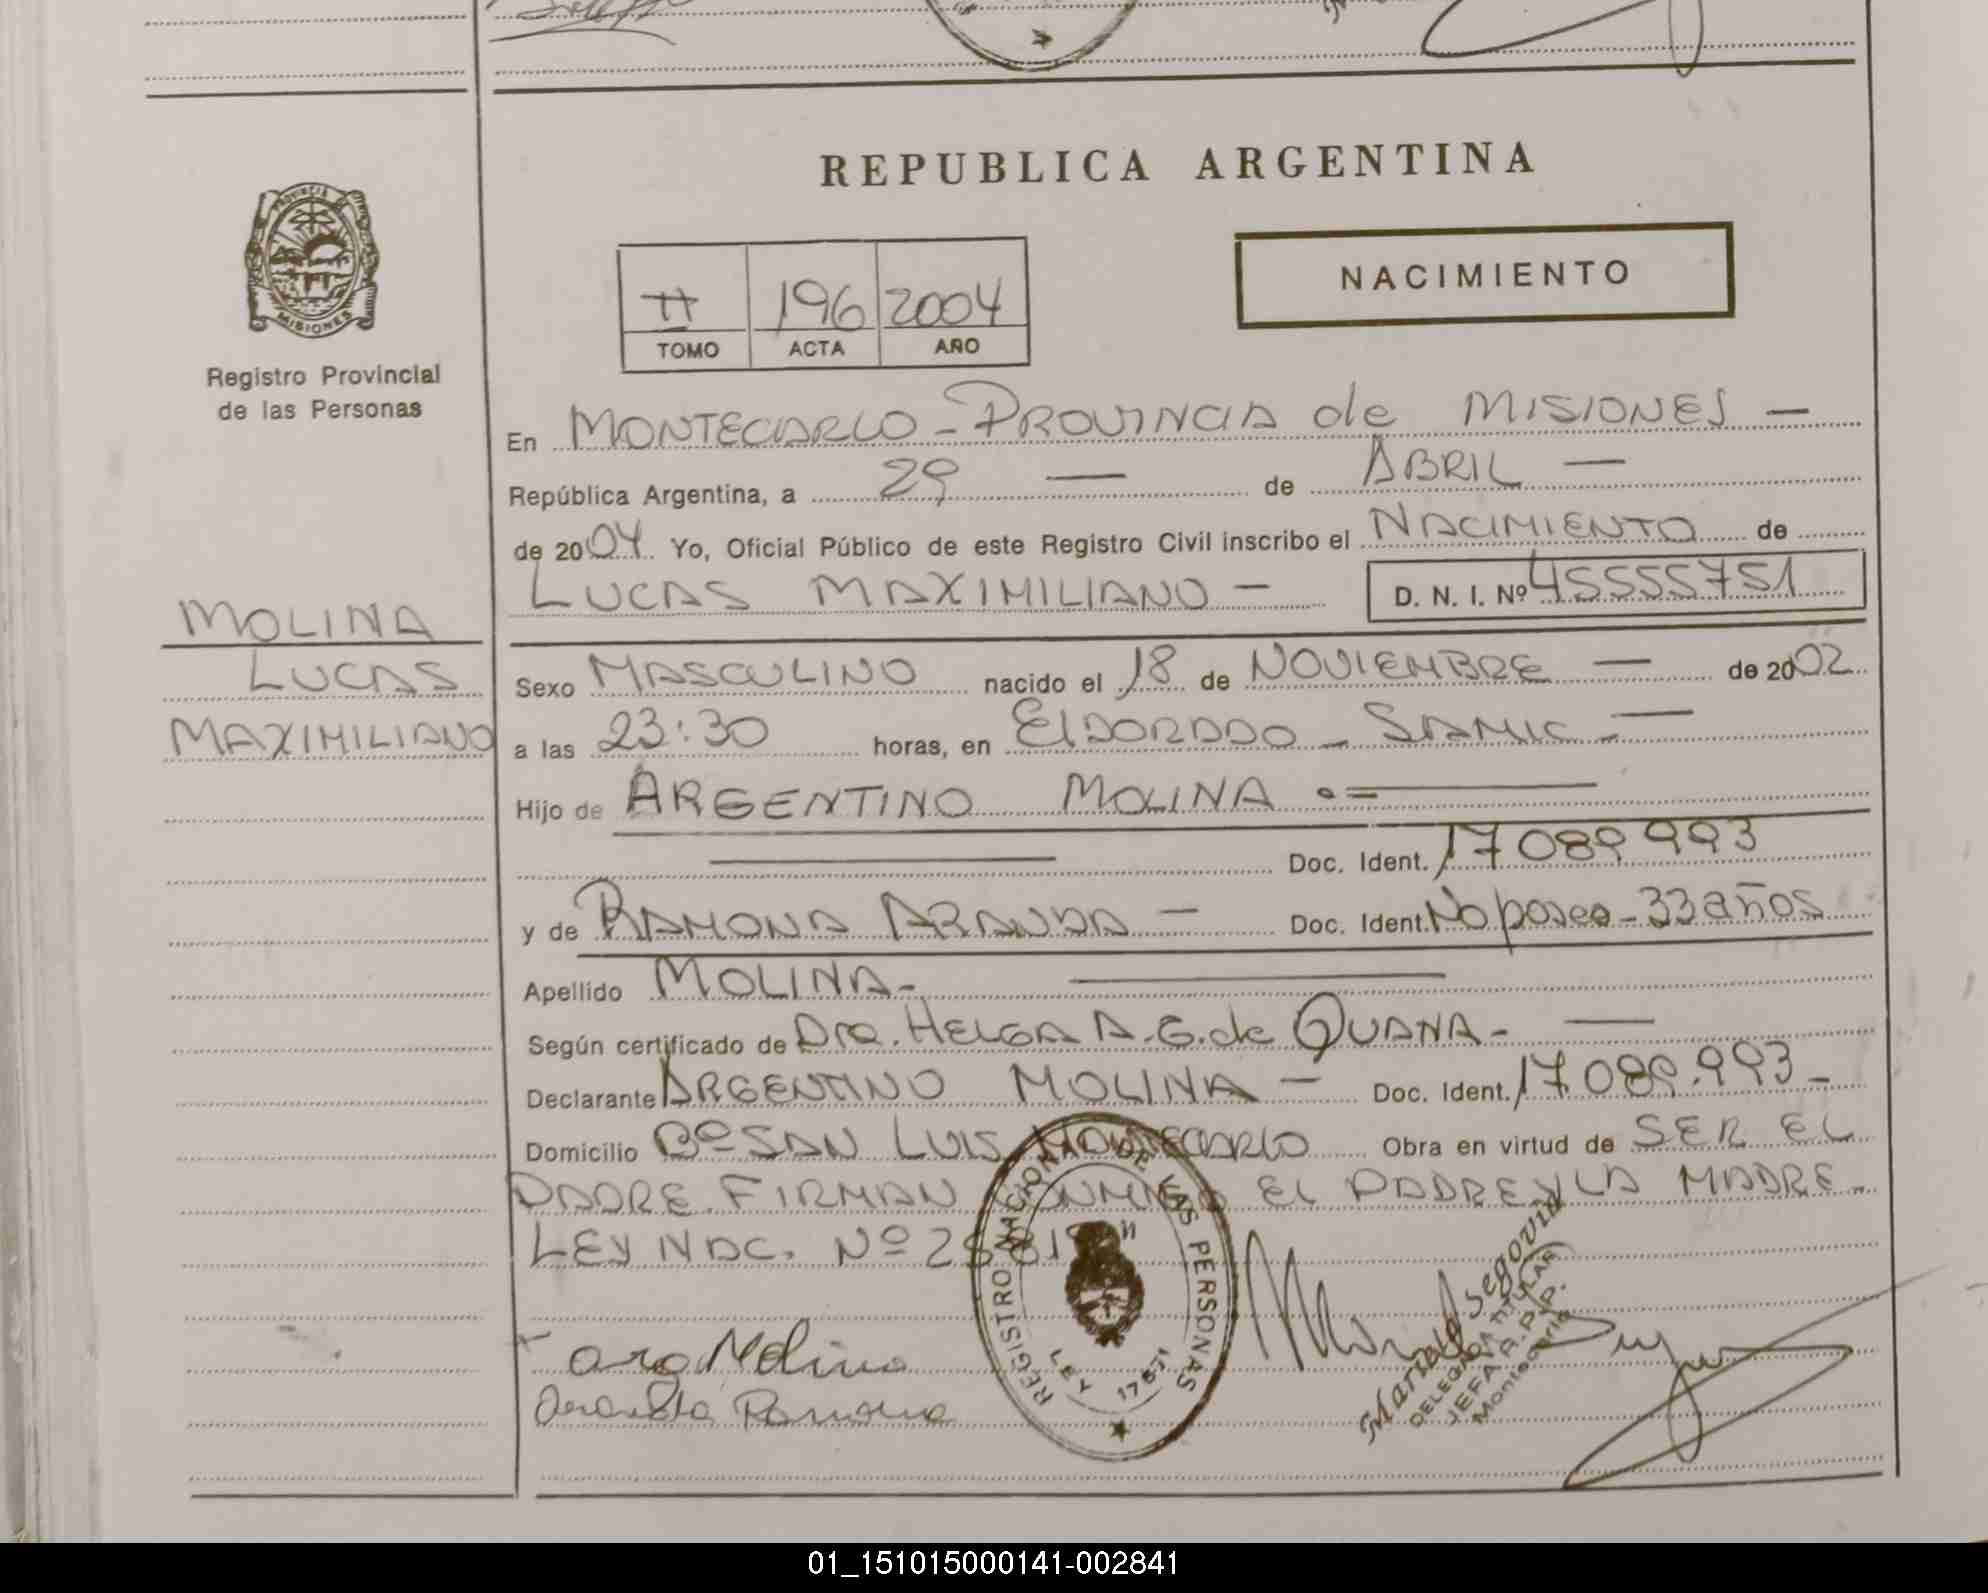 REPUBLICA ARGENTINA
PROVINCIA DE
MISIONES
Registro Provincial
de las Personas
NACIMIENTO
II 196 2004
TOMO ACTA AÑO
En MONTECARLO - PROVINCIA de MISIONES —
República Argentina, a 29 — de ABRIL —
de 2004 Yo, Oficial Público de este Registro Civil inscribo el NACIMIENTO de
LUCAS MAXIMILIANO — D. N. I. Nº 45555751
MOLINA
LUCAS
MAXIMILIANO
Sexo MASCULINO nacido el 18 de NOVIEMBRE — de 2002
a las 23:30 horas, en ElDORADO - SAMIC - —
Hijo de ARGENTINO MOLINA
Doc. Ident. 17089993
y de RAMONA ARANDA — Doc. Ident. No posee - 33 años
Apellido MOLINA -
Según certificado de Dra. HELGA A. G. de QUANA - —
Declarante ARGENTINO MOLINA — Doc. Ident. 17089.993 -
Domicilio Bº SAN LUIS MONTECARLO Obra en virtud de SER EL
PADRE. FIRMAN CONMIGO EL PADRE Y LA MADRE -
LEY NAC. Nº
REGISTRO NACIONAL DE LAS PERSONAS
LEY 17671
Molina
Segovia
DELEGADA TITULAR
JEFA R.P.P.
Montecarlo
01_151015000141-002841